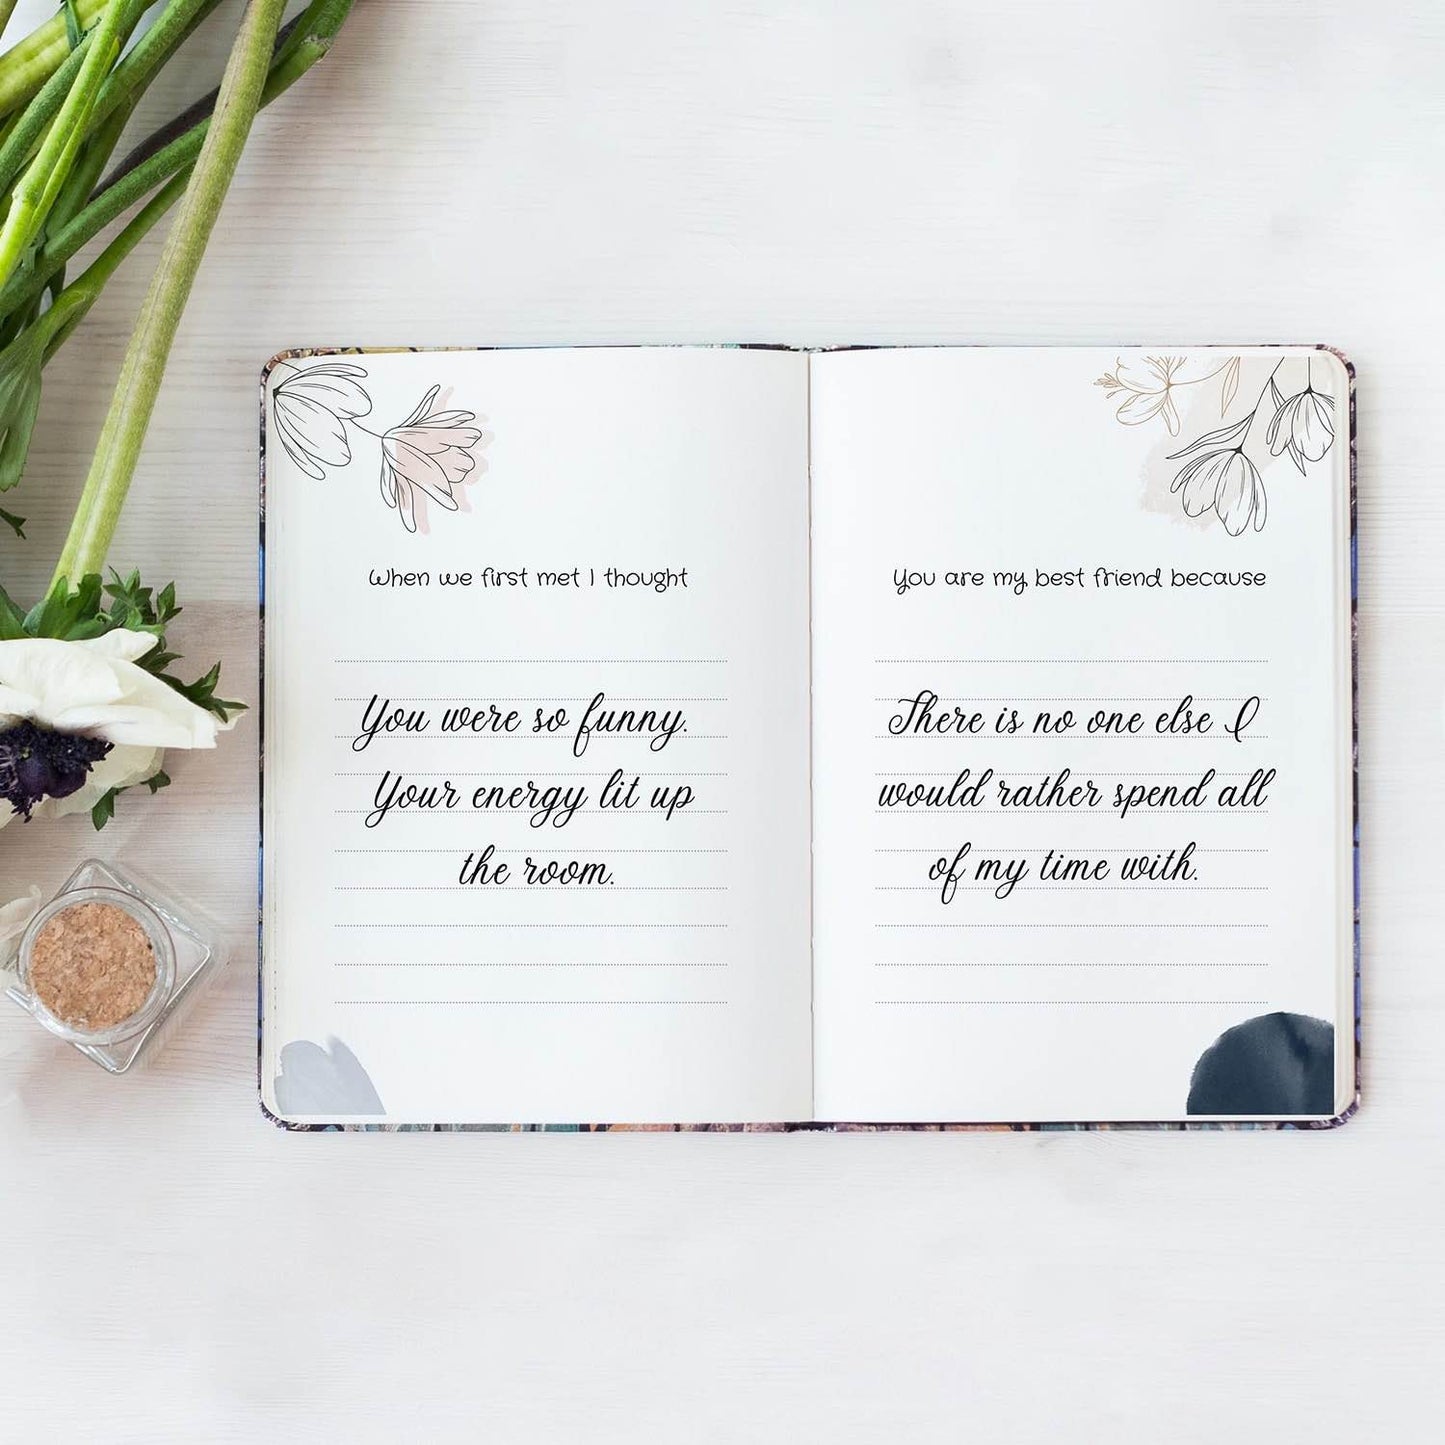 When we first met I thought
You were so funny.
Your energy lit up
the room.
You are my best friend because
There is no one else I
would rather spend all
of my time with.